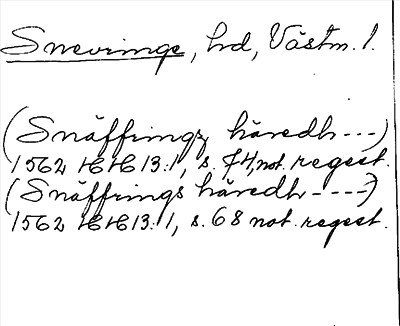 Snevringe, hd, Västm. l.
(Snäffringz häredh---)
1562 HH 13:1, s. 74, not. regest.
(Snäffrings häredh----)
1562 HH 13:1, s. 68 not. regest.